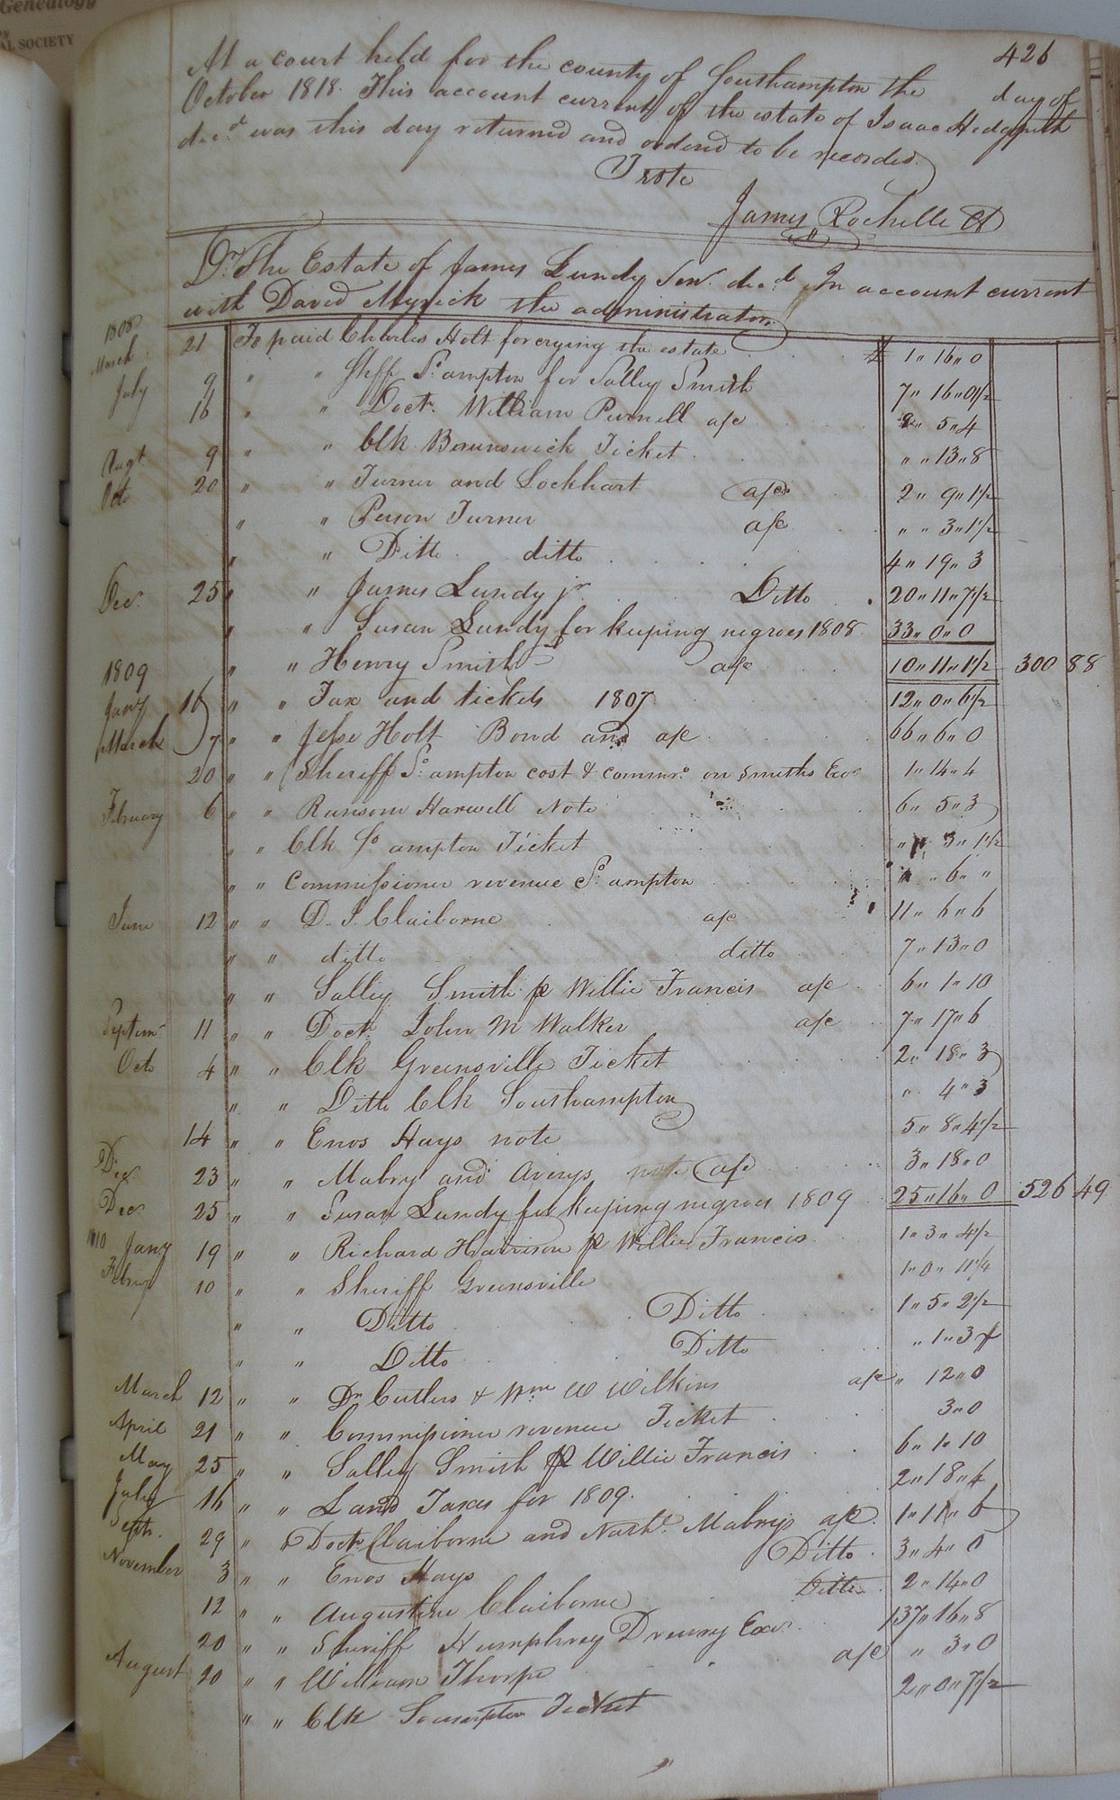 Genealogy
AL SOCIETY
426
At a court held for the county of Southampton the day of
October 1818. This account current of the estate of Isaac Hedgpeth
decd. was this day returned and ordered to be recorded.
Teste
James Rochelle Ct
Dr. The Estate of James Lundy Senr. decd. In account current
with David Myrick the administrator
1808
March 21 To paid Charles Holt for crying the estate £ 1 " 16 " 0
July 9 " " Shff So. ampton for Salley Smith 7 " 16 " 0 1/2
16 " " Doctr. William Purnell a/c " 5 " 4
Augt 9 " " Clk Brunswick Ticket " " 13 " 8
Oct 20 " " Turner and Lockhart a/c 2 " 9 " 1 1/2
" " Person Turner a/c " " 3 " 1 1/2
" " Ditto ditto 4 " 19 " 3
Dec. 25 " " James Lundy jr Ditto 20 " 11 " 7 1/2
" " Susan Lundy for keeping negroes 1808 33 " 0 " 0
1809 " " Henry Smith a/c 10 " 11 " 1 1/2 300 88
Jany 16 " " Tax and tickets 1807 12 " 0 " 6 1/2
March 7 " " Jesse Holt Bond and a/c 66 " 6 " 0
20 " " Sheriff So. ampton cost & commrs. on Smiths Exor 1 " 14 " 4
February 6 " " Ransom Harwell Note 6 " 5 " 3
" " Clk So ampton Ticket " " 3 " 1 1/2
" " Commissioner revenue So. ampton " " 6 " "
June 12 " " D. J. Claiborne a/c 11 " 6 " 6
" " ditto ditto 7 " 13 " 0
" " Salley Smith p Willie Francis a/c 6 " 1 " 10
Septem. 11 " " Doct. John M Walker a/c 7 " 17 " 6
Octo 4 " " Clk Greensville Ticket 2 " 18 " 3
" " Ditto Clk Southampton " 4 " 3
14 " " Enos Hays note 5 " 8 " 4 1/2
Dec 23 " " Mabry and Averys note a/c 3 " 18 " 0
Dec 25 " " Susan Lundy for keeping negroes 1809 25 " 16 " 0 526 49
1810 Jany 19 " " Richard Harrison p Willie Francis 1 " 3 " 4 1/2
Februy 10 " " Sheriff Greensville 1 " 0 " 11 1/4
" " Ditto Ditto 1 " 5 " 2 1/2
" " Ditto Ditto " 1 " 3
March 12 " " Dr Cutlers & Wm W Wilkins a/c " 12 " 0
April 21 " " Commissioner revenue Ticket 3 " 0
May 25 " " Salley Smith p Willie Francis 6 " 1 " 10
July 16 " " Land Taxes for 1809. 2 " 18 " 4
Septr. 29 " " Doctr Claiborne and Nathl. Mabrys a/c. 1 " 11 " 6
November 3 " " Enos Hays Ditto. 3 " 4 " 0
12 " " Augustine Claiborne Ditto 2 " 14 " 0
20 " " Sheriff Humphrey Drewry Exor. 137 " 16 " 8
August 20 " " William Thorpe a/c " 3 " 0
" " Clk Ticket 2 " 0 " 7 1/2